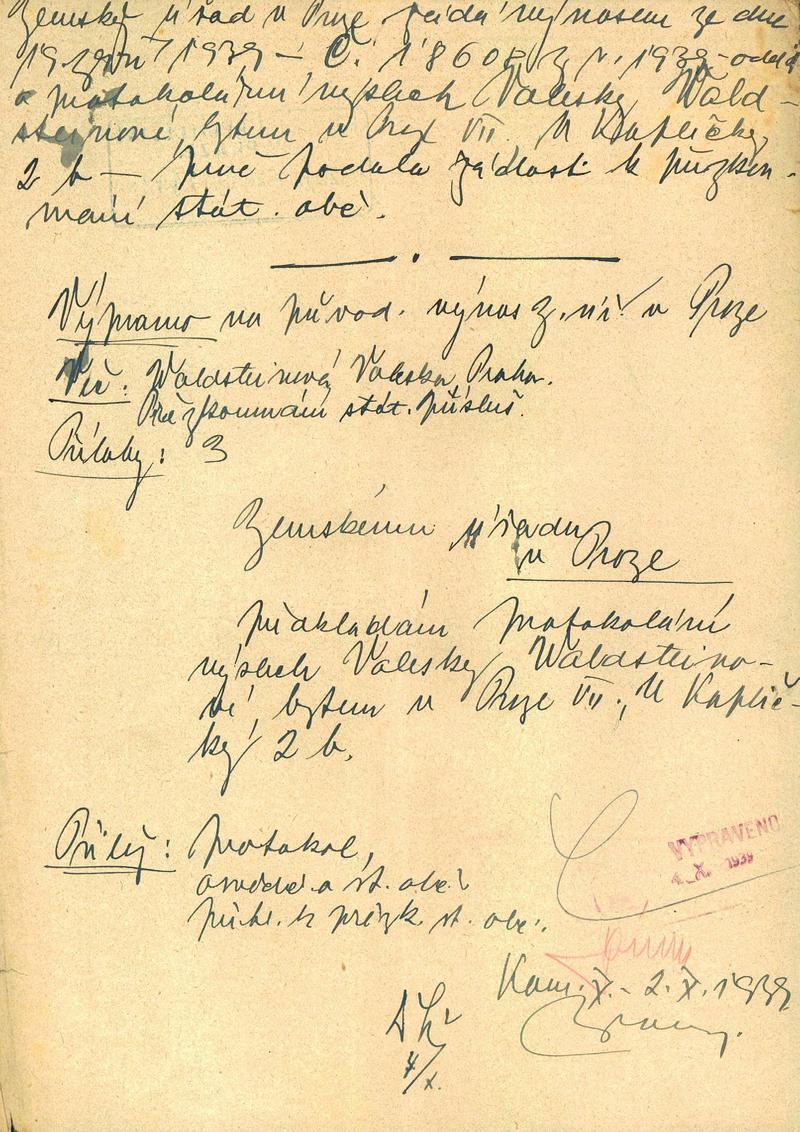 Zemský úřad v Praze žádá výnosem ze dne
19. září 1939 – Č. 1860 z r. 1939 – odd.
o protokolární výslech Valesky Wald-
steinové, bytem v Praze VII. U Kapličky
2 b – prve podala žádost k přezkou-
mání stát. obč.
Výpravno na původ. výnos z. úř. v Praze
Věc: Waldsteinová Valeska, Praha.
Přezkoumání stát. přísluš.
Přílohy: 3
Zemskému úřadu
v Praze
předkládám protokolární
výslech Valesky Waldsteino-
vé, bytem v Praze VII., U Kaplič-
ky 2 b.
Příl.: protokol,
osvědč. o st. obč.
přihl. k přezk. st. obč.
VYPRAVENO
4. X. 1939
Kom. X. - 2. X. 1939
4/X.